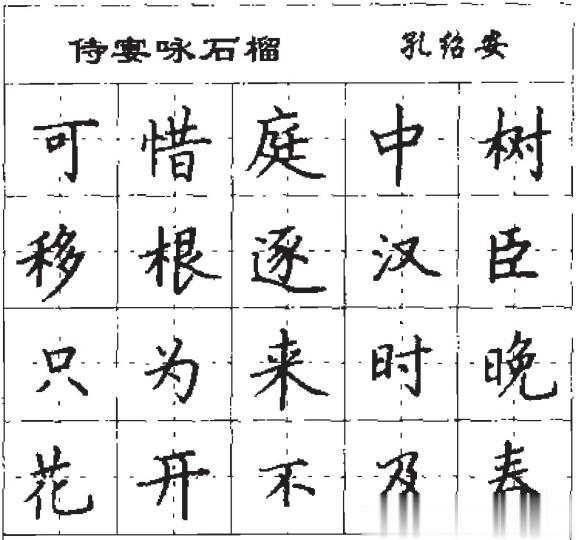 侍宴咏石榴 孔绍安
可惜庭中树
移根逐汉臣
只为来时晚
花开不及春